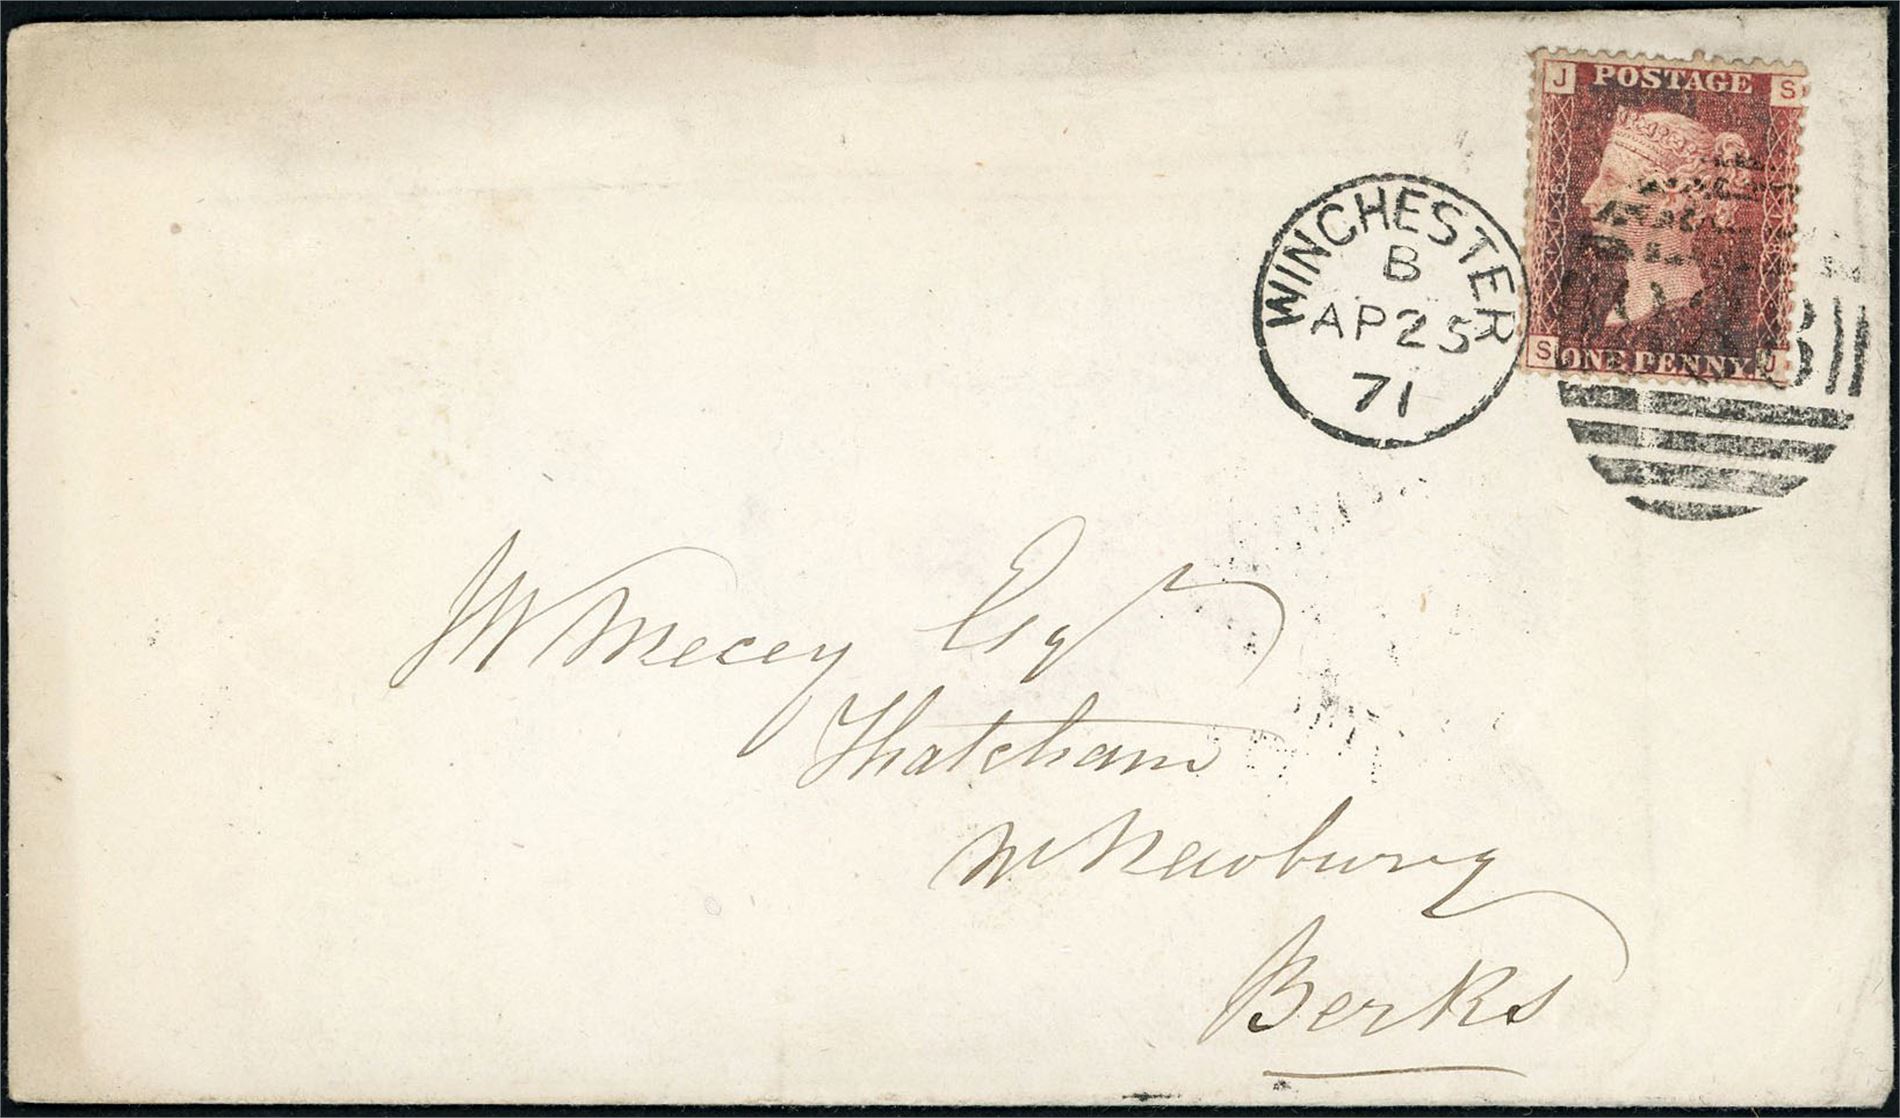 J POSTAGE S
S ONE PENNY J
WINCHESTER
B
AP 25
71
JW Mecey Esqr
Thatcham
Nr Newbury
Berks